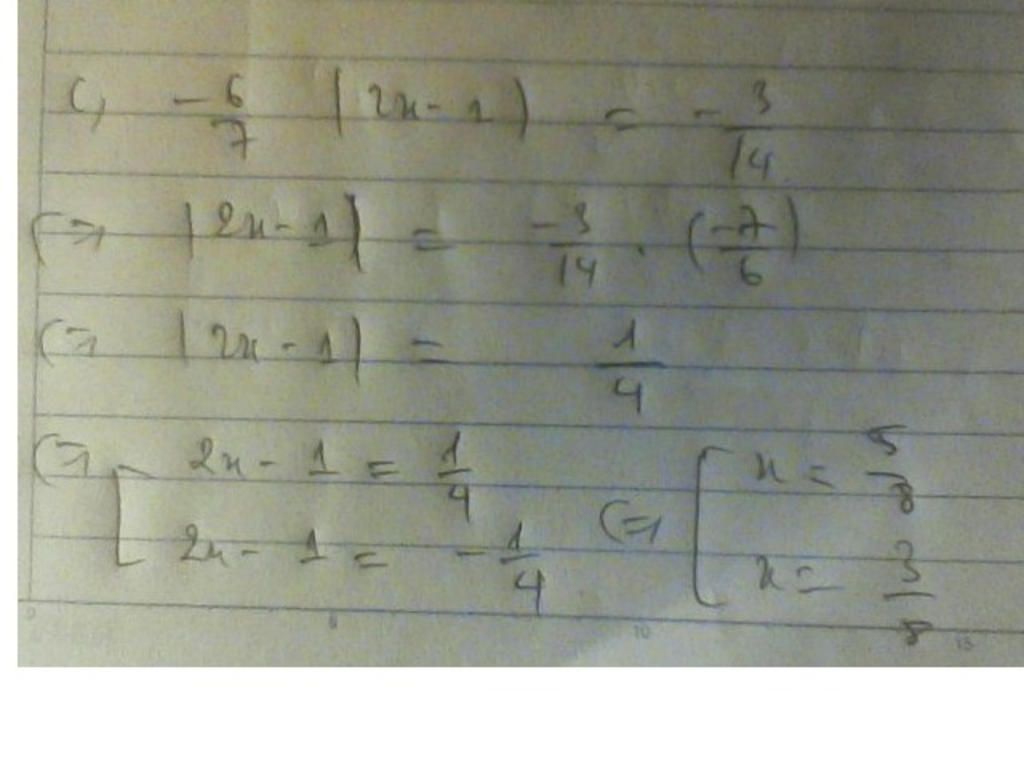 c, -6/7 |2x-1| = -3/14
<=> |2x-1| = -3/14 . (-7/6)
<=> |2x-1| = 1/4
<=> [ 2x-1 = 1/4 <=> [ x = 5/8
2x-1 = -1/4 x = 3/8